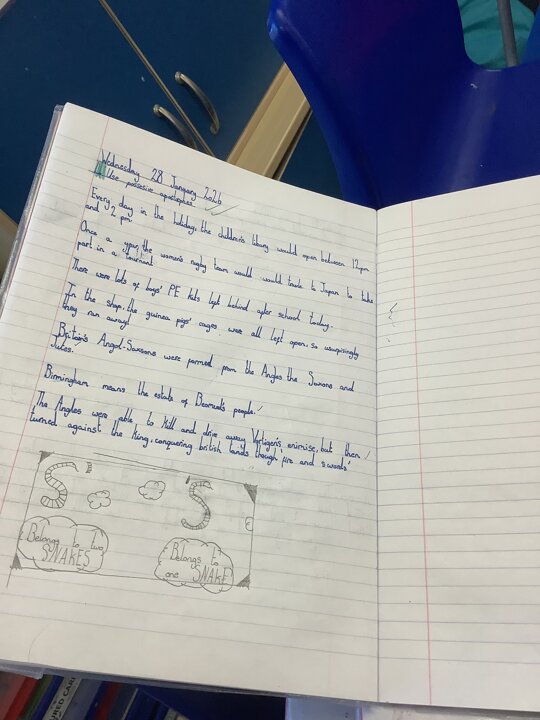 Wednesday 28 January 2026
Use possesive apostrophes
Every day in the holiday, the children's library would open between 12pm
and 2 pm.
Once a year, the women's rugby team would would travle to Japan to take
part in a tournant.
There were lots of boys' PE kits left behind after school today.
In the shop, the guinea pigs' cages were all left open, so usurprisingly
they ran away!
Britain's Angol-Saxsons were formed from the Angles the Saxons and
Jutes.
Birmingham means the estate of Beomud's people.
The Angles were able to kill and drive away Vortigern's enimise, but then
turned against the King, conquering british lands though fire and swords'
S
'S
Belongs to two
SNAKES
Belongs to
one SNAKE
URED CAR